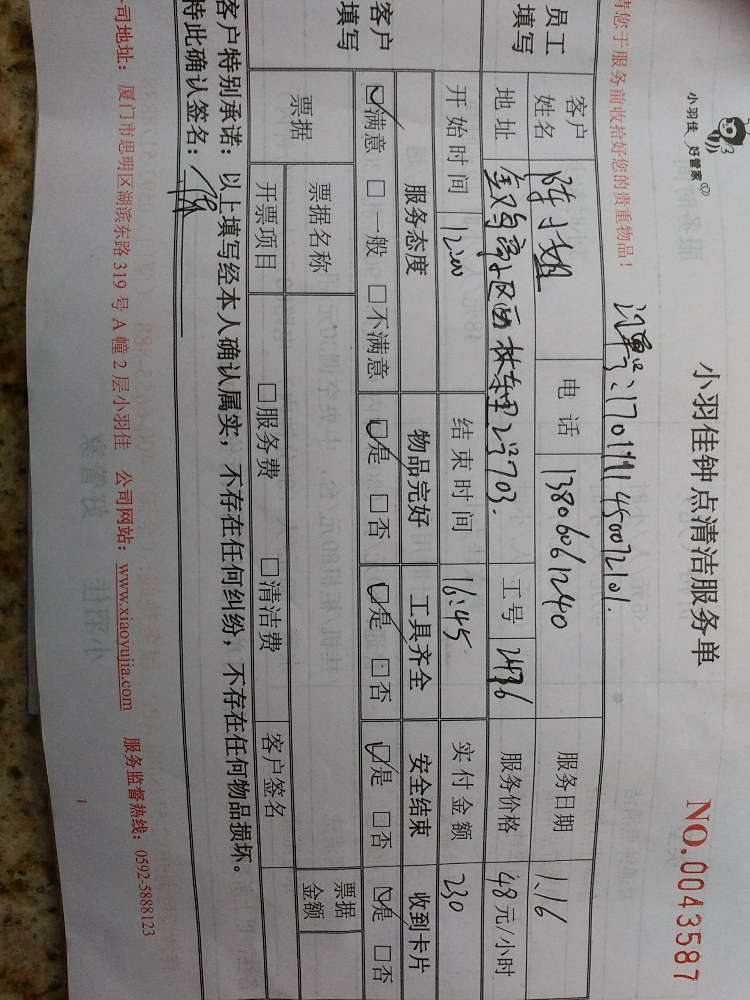 小羽佳 好管家
小羽佳钟点清洁服务单
NO.0043587
请您于服务前收拾好您的贵重物品!
员工填写
客户姓名 陈小姐 电话 13806061240 服务日期 1.16
地址 2号703. 工号 2436 服务价格 48元/小时
开始时间 12:00 结束时间 16:45 实付金额 230
客户填写
服务态度 物品完好 工具齐全 安全结束 收到卡片
☑满意 □一般 □不满意 ☑是 □否 ☑是 □否 ☑是 □否 ☑是 □否
票据 票据名称 票据金额
开票项目 □服务费 □清洁费 客户签名
客户特别承诺:以上填写经本人确认属实,不存在任何纠纷,不存在任何物品损坏。
特此确认签名:
公司地址:厦门市思明区湖滨东路319号A幢2层小羽佳 公司网站:www.xiaoyujia.com 服务监督热线:0592-5888123
1